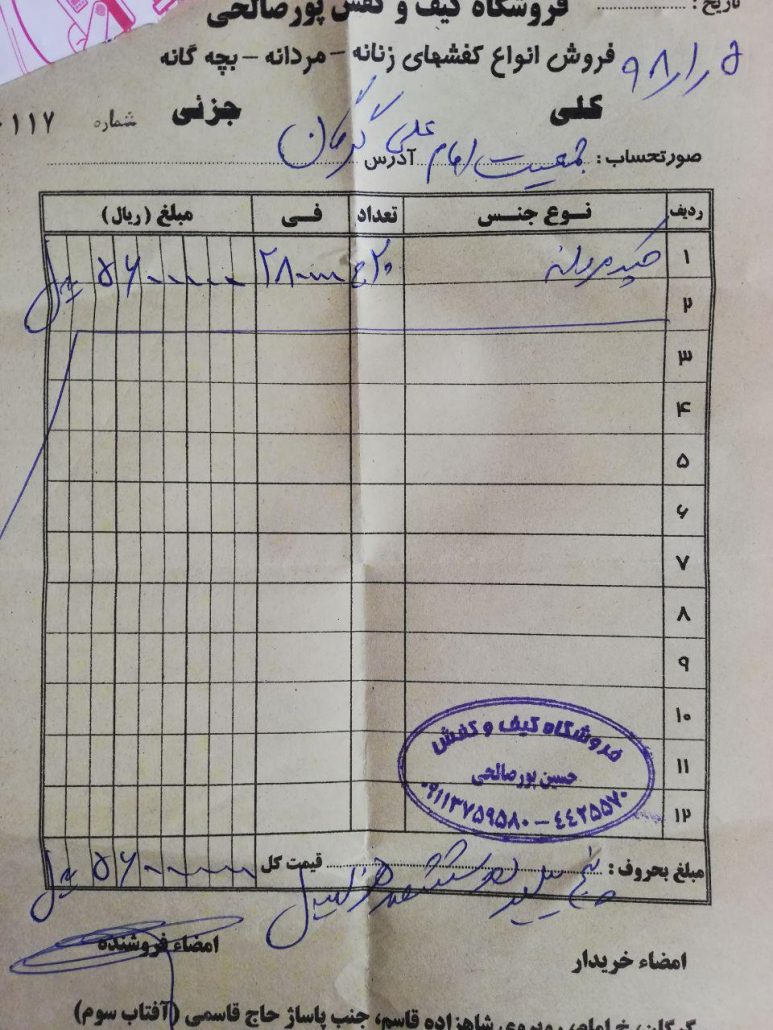 تاریخ :
فروشگاه کیف و کفش پورصالحی
فروش انواع کفشهای زنانه - مردانه - بچه گانه
۹۸/۱/۵
کلی جزئی شماره ۱۱۷
صورتحساب : جمعیت امام علی گرگان آدرس
ردیف نوع جنس تعداد فی مبلغ (ریال)
۱ مردانه ۲۰ج ۲۸۰۰۰۰ ۵۶۰۰۰۰۰ ریال
۲
۳
۴
۵
۶
۷
۸
۹
۱۰
۱۱
۱۲
فروشگاه کیف و کفش
حسین پورصالحی
۰۹۱۱۳۷۵۹۵۸۰ - ۴۴۲۵۵۷۰
مبلغ بحروف : پنج میلیون و ششصد هزار ریال قیمت کل ۵۶۰۰۰۰۰ ریال
امضاء خریدار امضاء فروشنده
گرگان، خ امام، روبروی شاهزاده قاسم، جنب پاساژ حاج قاسمی (آفتاب سوم)